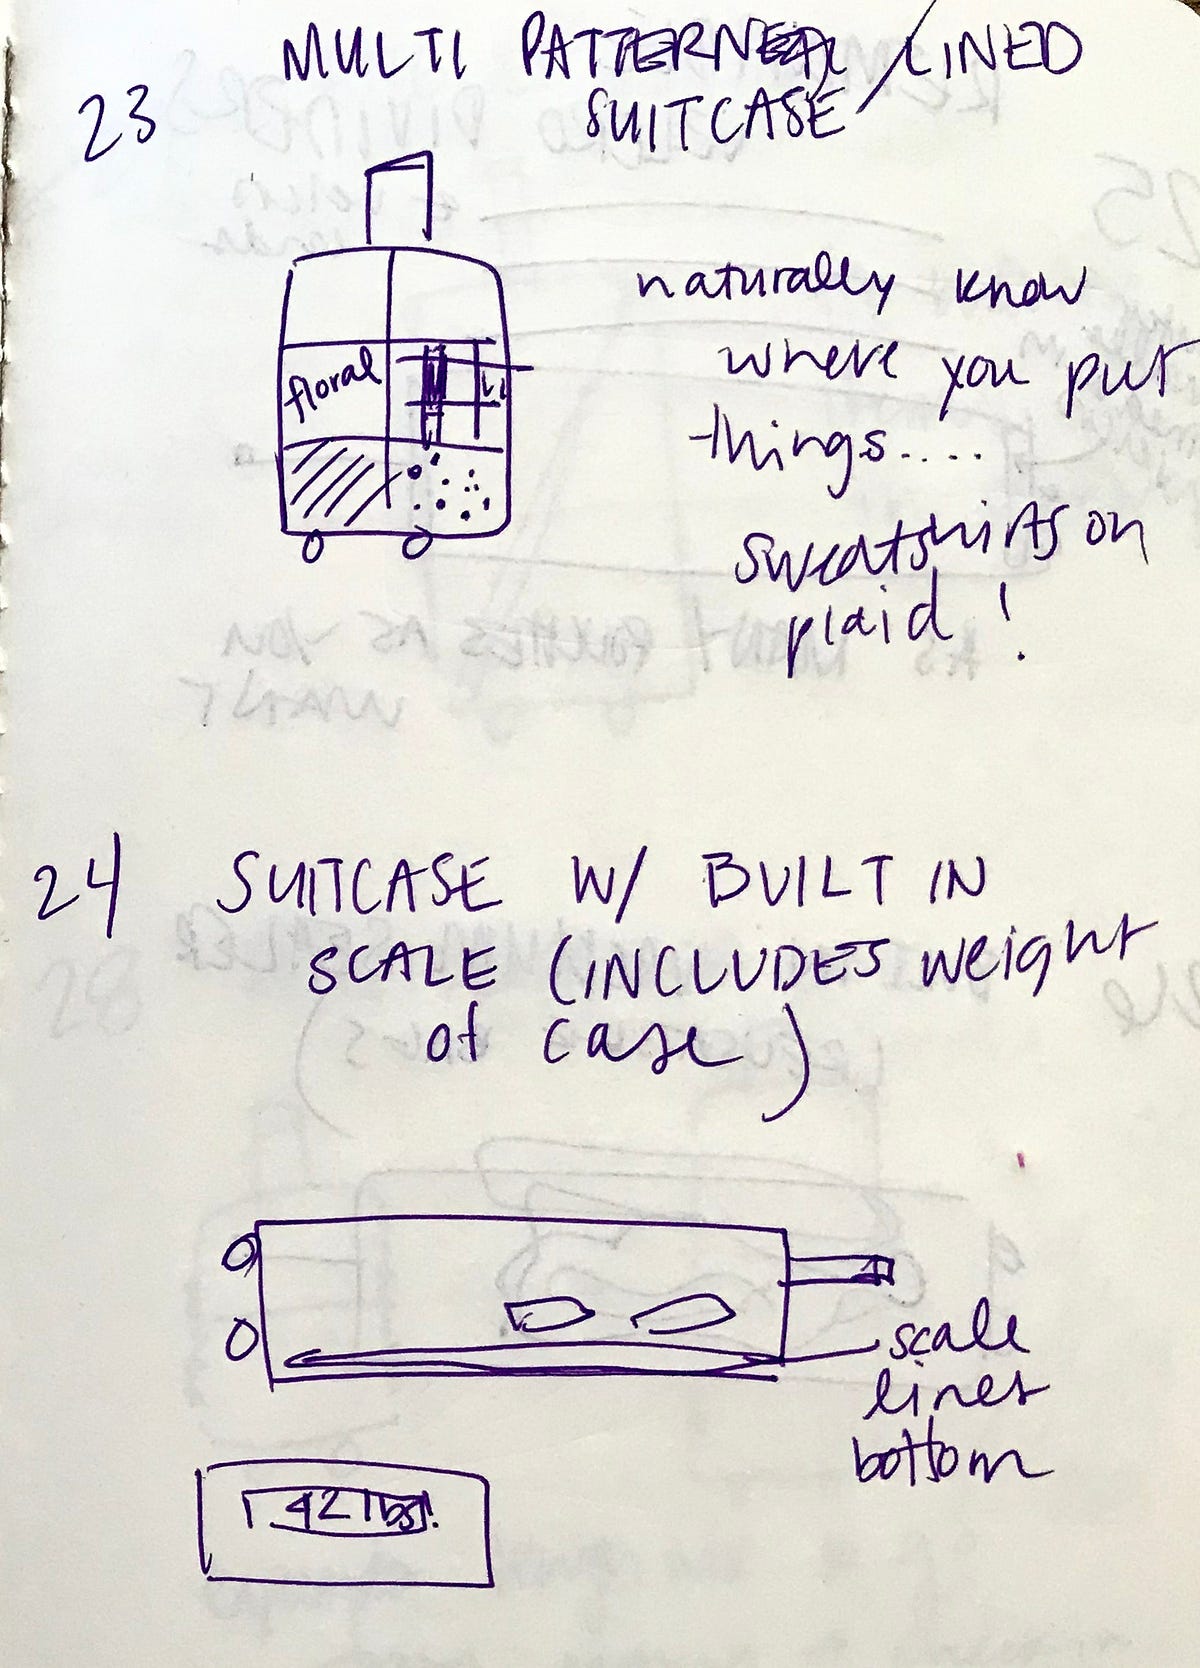 23
MULTI PATTERNED / LINED
SUITCASE
floral
naturally know
where you put
things....
sweatshirts on
plaid!
24 SUITCASE W/ BUILT IN
SCALE (INCLUDES weight
of case)
scale
lines
bottom
42 lbs!